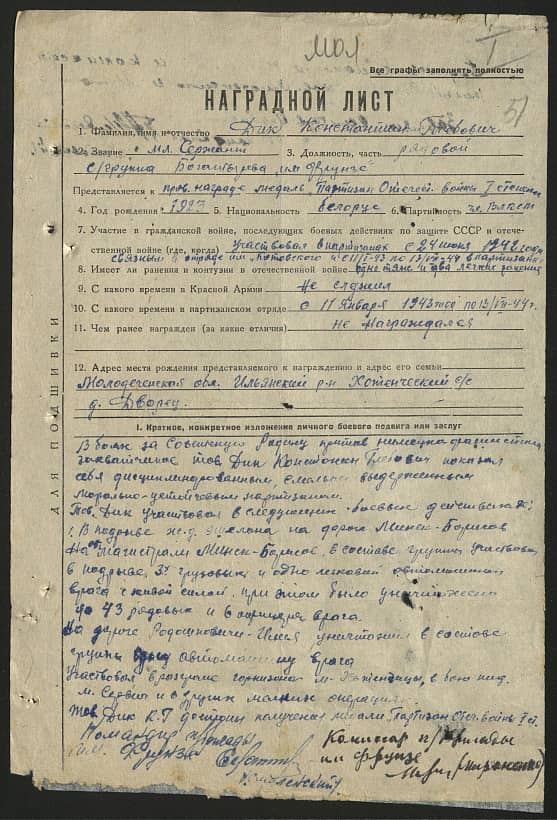 МОЛ
I
Все графы заполнять полностью
НАГРАДНОЙ ЛИСТ
51
1. Фамилия, имя и отчество Дик Константин
2. Звание мл. Сержант 3. Должность, часть рядовой
с/группа Богатырева им. Фрунзе
Представляется к прав. награде медаль Партизан Отечеств. войны I степени
4. Год рождения 1923 5. Национальность белорус 6. Партийность чл. ВЛКСМ
7. Участие в гражданской войне, последующих боевых действиях по защите СССР и отече-
ственной войне (где, когда) Участвовал в партизанах с 24 июня 1942 года
связным в отряде им. Котовского и с 11/I-43 по 13/VII-44 в партизанах
8. Имеет ли ранения и контузии в отечественной войне одно тяж. и два легких ранения
9. С какого времени в Красной Армии Не служил
10. С какого времени в партизанском отряде с 11 января 1943 года по 13/VII-44 г.
11. Чем ранее награжден (за какие отличия) не награждался
12. Адрес места рождения представляемого к награждению и адрес его семьи
Молодеченская обл. Ильянский р-н Хотенческий с/с
д. Дворец.
ДЛЯ ПОДШИВКИ
I. Краткое, конкретное изложение личного боевого подвига или заслуг
В боях за Советскую Родину против немецко фашистских
захватчиков тов. Дик Константин показал
себя дисциплинированным, смелым выдержанным
морально-устойчивым партизаном.
Тов. Дик участвовал в следующих боевых действиях:
1. В подрыве ж.д. эшелона на дороге Минск-Борисов
На магистрали Минск-Борисов, в составе группы участвовал
в подрыве 3х грузовых и одно легковой автомашин
врага с живой силой. при этом было уничтожено
до 43 рядовых и 6 офицеров врага.
На дороге Радошковичи-Илия уничтожил в составе
группы автомашину врага
Участвовал в разгроме гарнизона м. Хотенчицы, в бою под
м. Сервич и в других мелких операциях.
Тов. Дик К.Г. достоин получения медали Партизан Отеч. войны I ст.
Командир бригады
им. Фрунзе
Комиссар п/бригады
им. Фрунзе